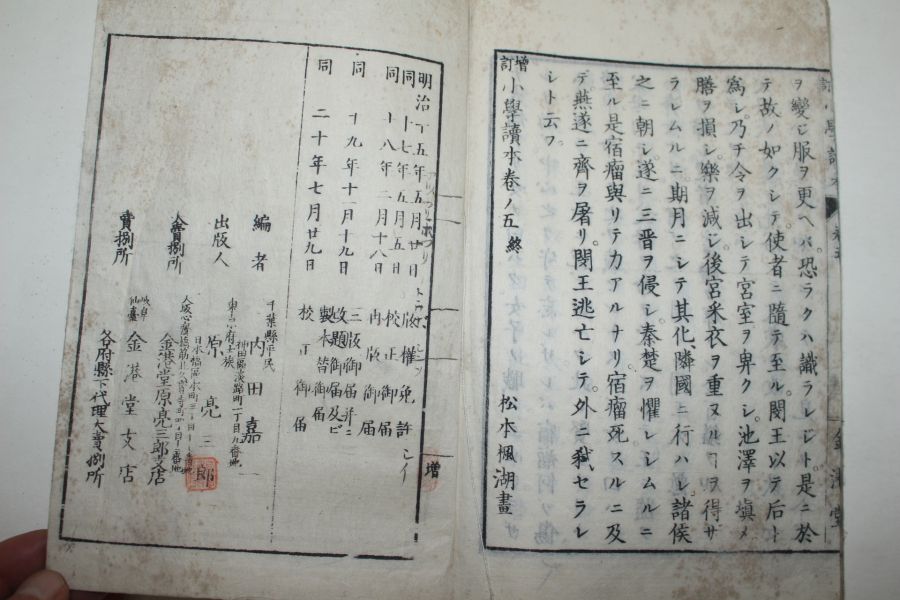 ヲ變ジ服ヲ更ヘバ、恐ラクハ識ラレジト。是ニ於
テ故ノ如クシテ、使者ニ隨テ至ル。閔王以テ后ト
爲シ、乃チ令ヲ出シテ宮室ヲ卑クシ、池澤ヲ塡メ
膳ヲ損シ、樂ヲ減ジ、後宮采衣ヲ重ヌルヿヲ得サ
ラシムルニ、期月ニシテ其化、隣國ニ行ハレ、諸侯
之ニ朝シ、遂ニ三晋ヲ侵シ、秦楚ヲ懼レシムルニ
至ル。是宿瘤與リテ力アルナリ。宿瘤死スルニ及
デ、燕遂ニ齊ヲ屠リ、閔王逃亡シテ、外ニ弑セラレ
シト云フ。
增訂 小學讀本卷ノ五 終 松本楓湖畫
明治十五年五月廿日 版權免許
同 十七年五月五日 校正御届
同 十八年二月十八日 内版御届
同 十九年十一月十九日 三版御届并ニ改題御届及ビ製本皆御届
同 二十年七月廿九日 校正御届
編者 千葉縣平民 内田嘉一
出版人 東京府士族 原亮三郎
賣捌所 金港堂原亮三郎支店
賣捌所 仙臺 金港堂支店
各府縣下代理大賣捌所
增
金港堂